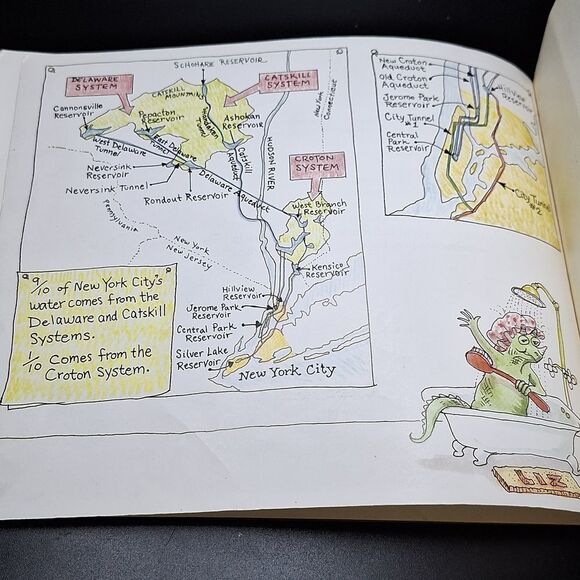 SCHOHARIE RESERVOIR
DELAWARE
SYSTEM
CATSKILL
MOUNTAINS
CATSKILL
SYSTEM
Cannonsville
Reservoir
Pepacton
Reservoir
Shandaken
Tunnel
Ashokan
Reservoir
West Delaware
Tunnel
East Delaware
Tunnel
Catskill
Aqueduct
HUDSON RIVER
New York
Connecticut
Neversink
Reservoir
Neversink Tunnel
Delaware Aqueduct
Rondout Reservoir
CROTON
SYSTEM
West Branch
Reservoir
Pennsylvania
New York
New Jersey
Kensico
Reservoir
Hillview
Reservoir
Jerome Park
Reservoir
Central Park
Reservoir
Silver Lake
Reservoir
New York City
9/10 of New York City's
water comes from the
Delaware and Catskill
Systems.
1/10 Comes from the
Croton System.
New Croton
Aqueduct
Old Croton
Aqueduct
Hillview
Reservoir
Jerome Park
Reservoir
City Tunnel
#1
Central Park
Reservoir
City Tunnel
#2
LIZ